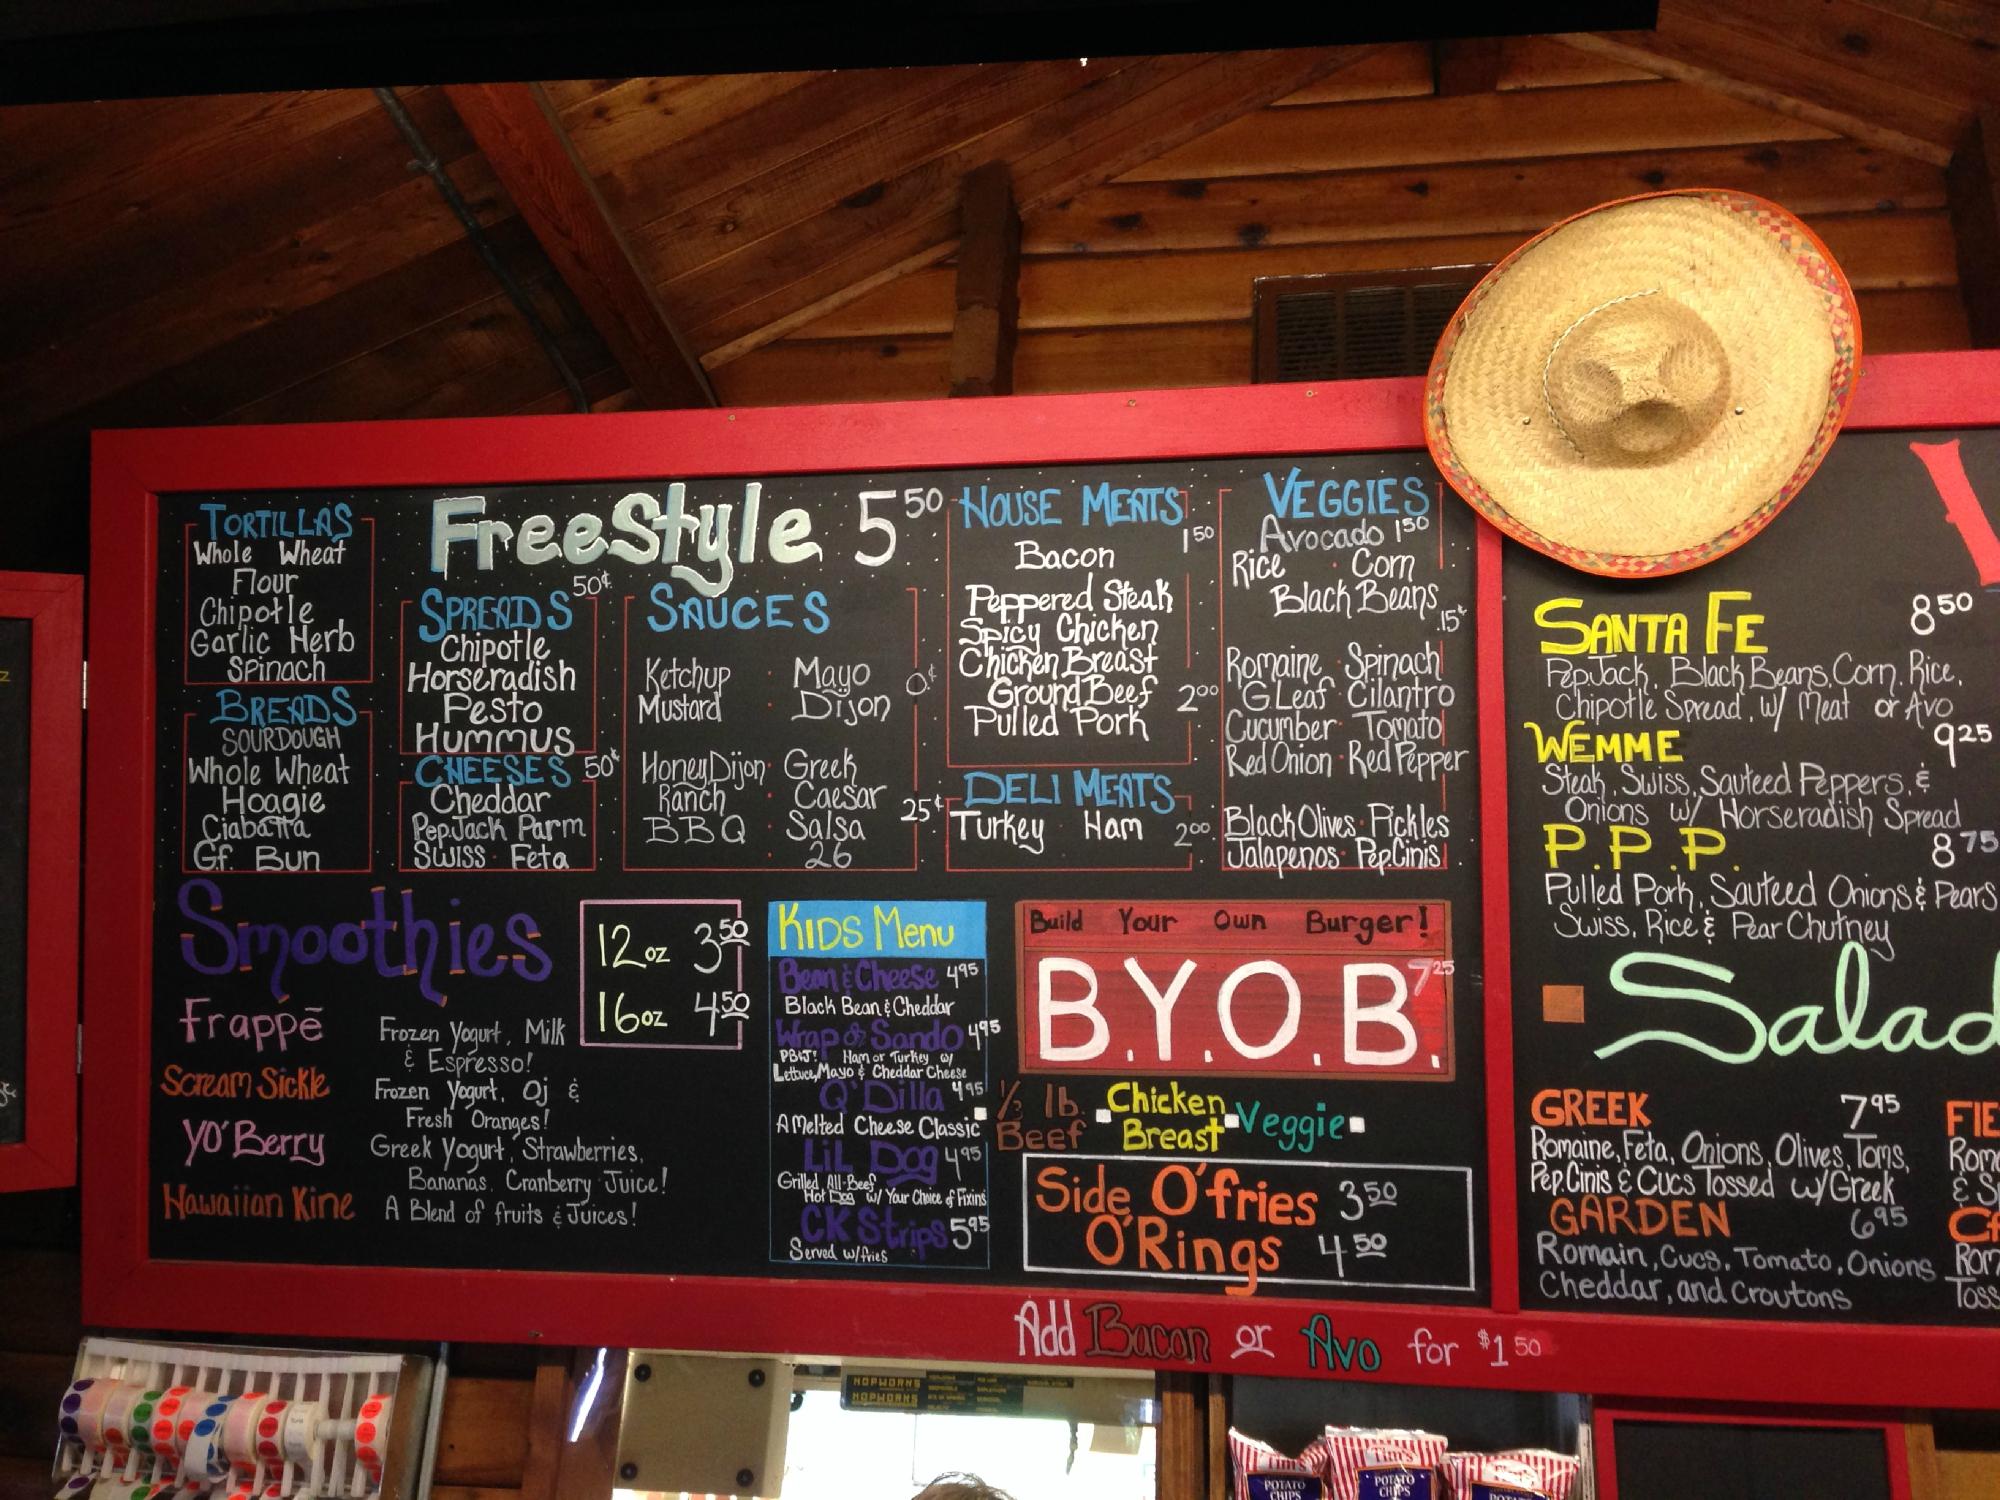 TORTILLAS
Whole Wheat
Flour
Chipotle
Garlic Herb
Spinach
BREADS
SOURDOUGH
Whole Wheat
Hoagie
Ciabatta
Gf. Bun
FreeStyle 5 50
SPREADS 50¢
Chipotle
Horseradish
Pesto
Hummus
CHEESES 50¢
Cheddar
Pep.Jack Parm
Swiss · Feta
SAUCES
Ketchup · Mayo
Mustard · Dijon
0¢
Honey Dijon · Greek
Ranch · Caesar
BBQ · Salsa
26
25¢
HOUSE MEATS
1 50
Bacon
Peppered Steak
Spicy Chicken
Chicken Breast
Ground Beef
Pulled Pork
2 00
DELI MEATS
Turkey · Ham
2 00
VEGGIES
Avocado 1 50
Rice · Corn
Black Beans
.15¢
Romaine · Spinach
G.Leaf · Cilantro
Cucumber · Tomato
Red Onion · Red Pepper
Black Olives · Pickles
Jalapenos · Pep.Cinis
Smoothies
12oz 3 50
16oz 4 50
Frappē
Frozen Yogurt, Milk
& Espresso!
Scream Sickle
Frozen Yogurt, Oj &
Fresh Oranges!
YO'Berry
Greek Yogurt, Strawberries,
Bananas, Cranberry Juice!
Hawaiian Kine
A Blend of fruits & Juices!
KIDS Menu
Bean & Cheese 4 95
Black Bean & Cheddar
Wrap or Sando 4 95
PB&J! Ham or Turkey w/
Lettuce, Mayo & Cheddar Cheese
Q'Dilla 4 95
A Melted Cheese Classic
LiL Dog 4 95
Grilled All-Beef
Hot Dog w/ Your Choice of Fixins
CK Strips 5 95
Served w/fries
Build Your Own Burger!
B.Y.O.B. 7 25
1/3 lb. Beef
Chicken Breast
Veggie
Side O'fries 3 50
O'Rings 4 50
Add Bacon or Avo for $1 50
SANTA FE 8 50
Pep.Jack, Black Beans, Corn, Rice,
Chipotle Spread, w/ Meat or Avo
WEMME 9 25
Steak, Swiss, Sauteed Peppers, &
Onions w/ Horseradish Spread
P.P.P. 8 75
Pulled Pork, Sauteed Onions & Pears
Swiss, Rice & Pear Chutney
Salad
GREEK 7 95
Romaine, Feta, Onions, Olives, Toms,
Pep.Cinis & Cucs Tossed w/Greek
GARDEN 6 95
Romain, Cucs, Tomato, Onions
Cheddar, and Croutons
FIE
Rom
& S
Rom
Toss
HOPWORKS
HOPWORKS
Tim's
POTATO
CHIPS
Tim's
POTATO
CHIPS
Tim's
POTATO
CHIPS